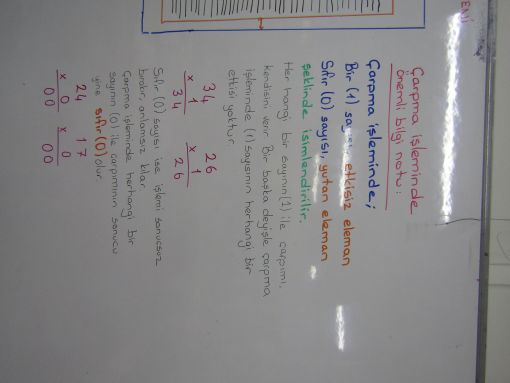 Çarpma işleminde
önemli bilgi notu:
Çarpma işleminde;
Bir (1) sayısı, etkisiz eleman
Sıfır (0) sayısı, yutan eleman
şeklinde isimlendirilir.
Her hangi bir sayının (1) ile çarpımı,
kendisini verir. Bir başka deyişle çarpma
işleminde (1) sayısının herhangi bir
etkisi yoktur.
34 26
x 1 x 1
34 26
Sıfır (0) sayısı ise işlemi sonuçsuz
bırakır, anlamsız kılar.
Çarpma işleminde herhangi bir
sayının (0) ile çarpımının sonucu
yine sıfır (0) olur.
24 17
x 0 x 0
00 00